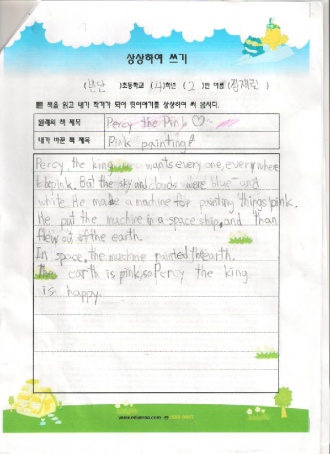 상상하여 쓰기
초등학교 (4)학년 (2)반 이름
책을 읽고 내가 작가가 되어 뒷이야기를 상상하여 써 봅시다.
원래의 책 제목 Percy the Pink ♡
내가 바꾼 책 제목 Pink painting
Percy, the king wants every one, every where
to be pink. But the sky and clouds were blue and
white. He made a machine for painting things pink.
He put the machine in a space ship, and than
flew out of the earth.
In space, the machine painted the earth.
the earth is pink, so Percy the king
is happy.